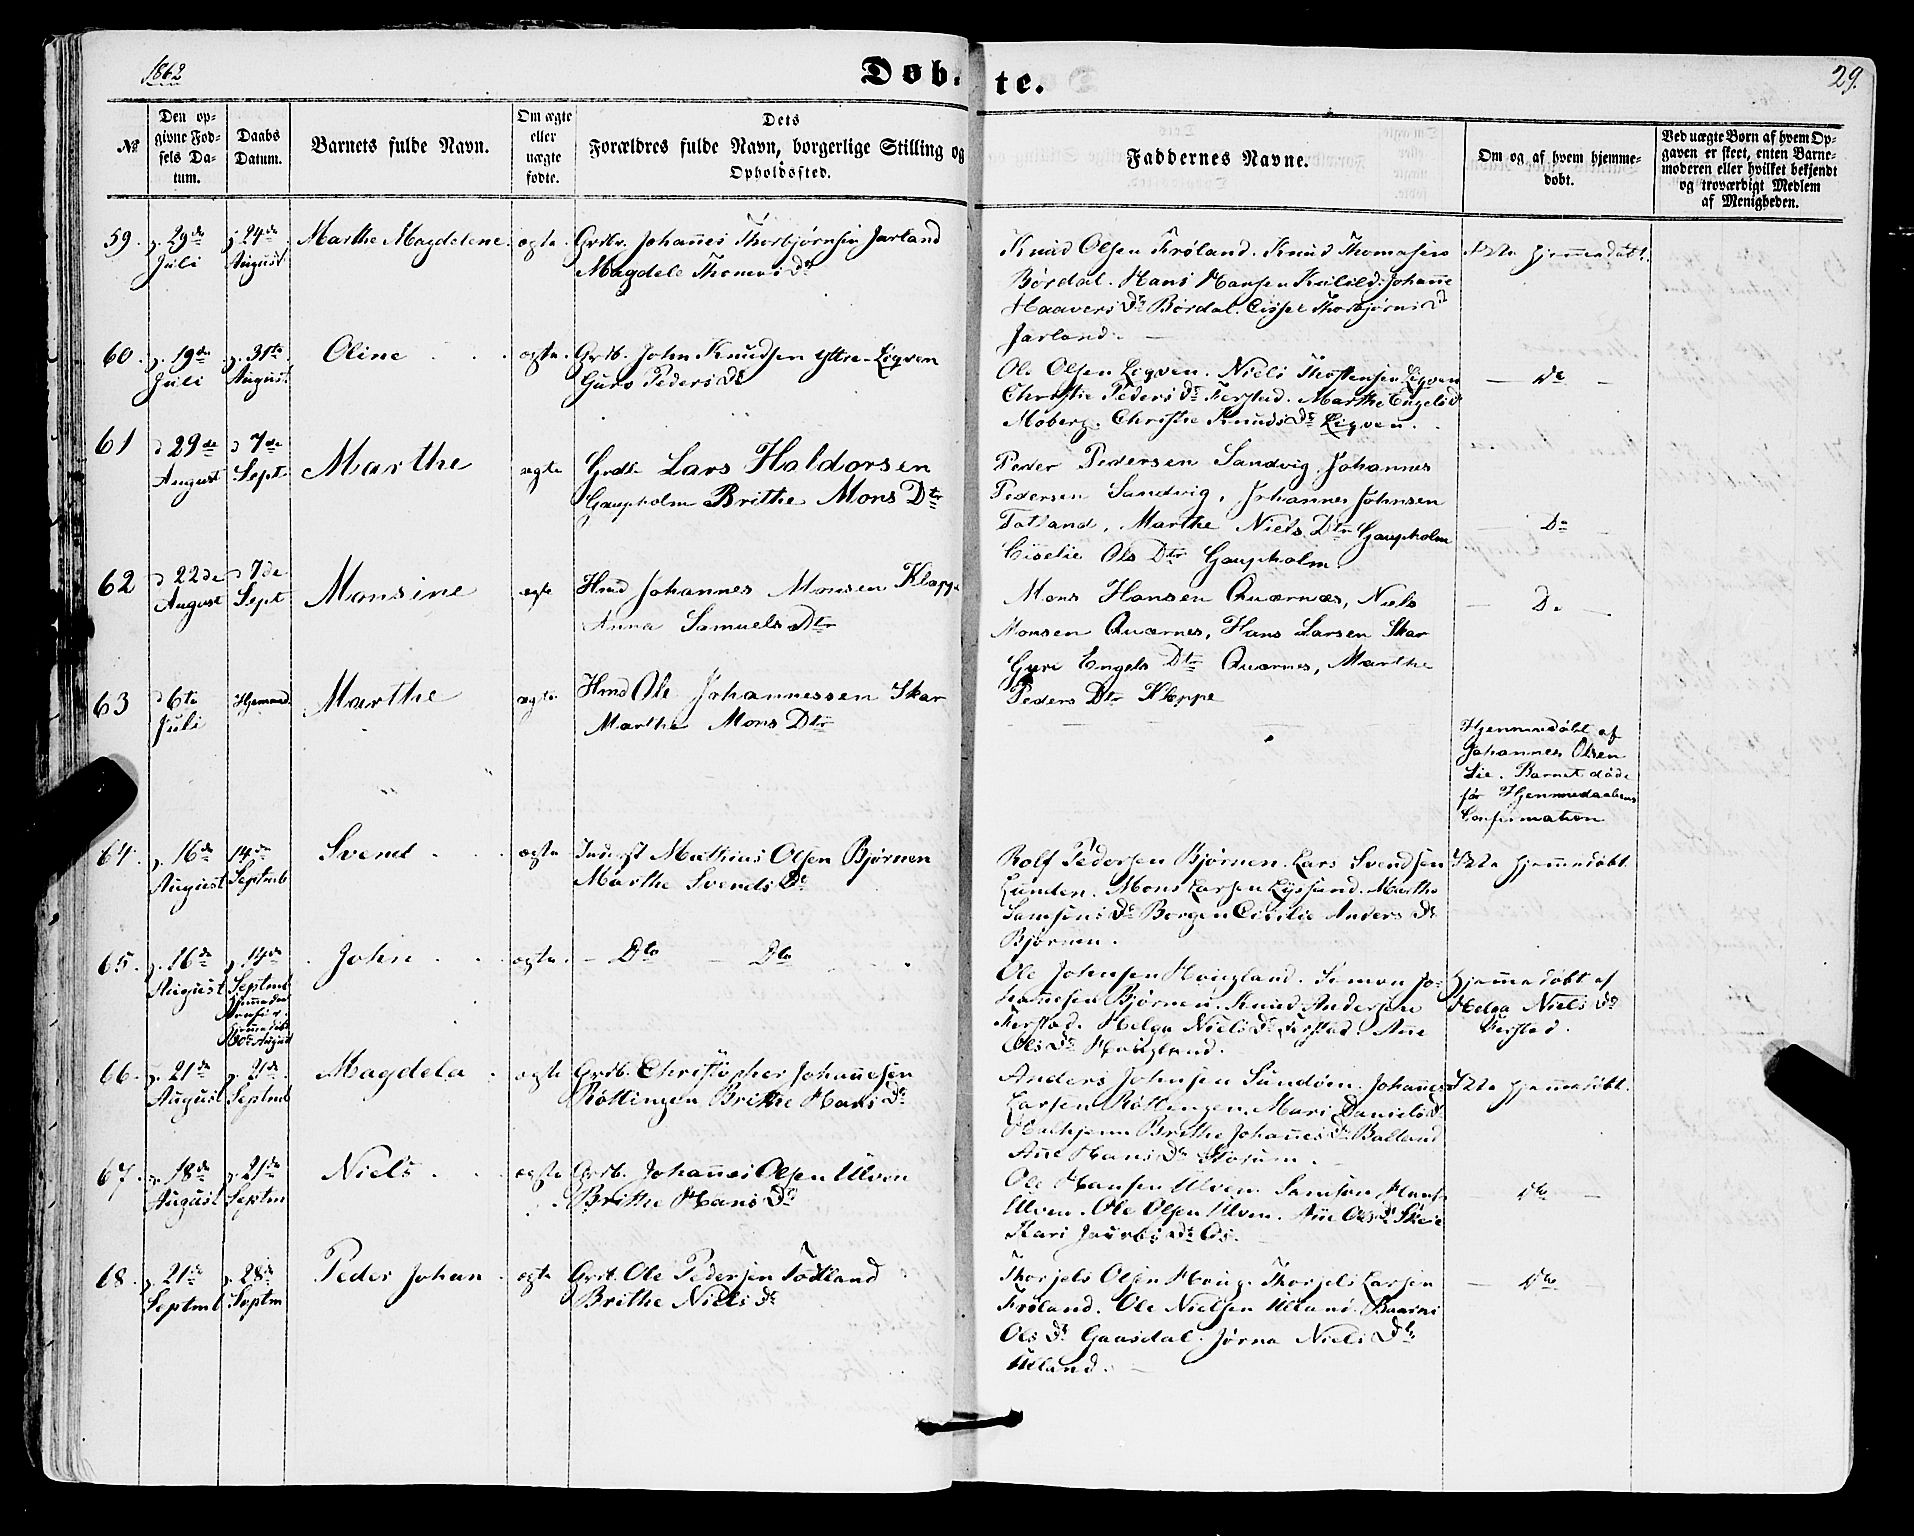 1862
Døbte.
29.
No
Den opgivne Fødsels Datum.
Daabs Datum.
Barnets fulde Navn.
Om ægte eller uægte fødte.
Dets Forældres fulde Navn, borgerlige Stilling og Opholdssted.
Faddernes Navne.
Om og af hvem hjemmedøbt.
Ved uægte Børn af hvem Opgaven er skeet, enten Barnemoderen eller hvilket bekjendt og troværdigt Medlem af Menigheden.
59. d. 29de Juli
d. 24de August
Marthe Magdelene.
ægte.
Grdbr. Johanes Thorbjørnsen Jarland
Magdele Thomas Dr
Knud Olsen Frøland. Knud Thomasen
Børdal. Hans Hansen Johane
Haavers Dr Børdal. Thorbjørns D
Jarland.
Ikke hjemmedøbt.
60. d. 19de Juli
d. 31te August
Oline
ægte.
Grdb. John Knudsen Ytre-Ligven
Guro Peders Dr
Ole Olsen Ligven. Niels Thostensen Ligven
Christie Peders Dr Ferstad. Marthe Engels D
Moberg. Christie Knuds Dr Ligven.
Do
61 d 29de August
d 7de Sept
Marthe
ægte
Grdb Lars Haldorsen
Gaupholm Brithe Mons Dtr
Peder Pedersen Sandvig, Johannes
Pedersen Sandvig, Johannes Johnsen
Tøtland, Marthe Niels Dtr Gaupholm
Ciselie Ols Dtr Gaupholm
Do
62 d 22de August
d 7de Sept
Monsine
ægte
Hmd Johannes Monsen Klepp
Anna Samuels Dtr
Mons Hansen Quærnæs, Niels
Monsen Quærnes, Hans Larsen Skar
Guri Engels Dtr Quærnes, Marthe
Peders Dtr Kleppe
Do
63 d 6te Juli
Hjemmed.
Marthe
ægte
Hmd Ole Johannessen Skar
Marthe Mons Dtr
Hjemmedøbt af
Johannes Olsen
Lie. Barnet døde
før Hjemmedaabens
Confirmation
64. d. 16de August
14de Septmb
Svend
ægte
Inderst Mathias Olsen Bjørnen
Marthe Svends Dr
Rolf Pedersen Bjørnen. Lars Svendsen
Lunden. Mons Larsen Lysund. Marthe
Samsons Dr Borgen Cicilie Anders Dr
Bjørnen.
Ikke hjemmedøbt.
65. d. 16de August
d. 14de Septmb
Hjemmedøbt
August
John
ægte.
Dto Dto
Ole Johnsen Hougland. Simon Johanesen
Bjørnen. Knud Andersen
Ferstad. Helga Niels Dr Ferstad. Ane
Ols Dr Hougland.
Hjemmedøbt af
Helga Niels Dr
Ferstad.
66. d. 21de August
d. 21de Septmb
Magdela
ægte
Grdb. Christopher Johanesen
Røttingen Brithe Hans Dr
Anders Johnsen Sundøen. Johannes
Larsen Røttingen. Mari Daniels D
Halhjem Brithe Johanes Dr Balland
Ane Hans Dr
Ikke hjemmedøbt.
67. d. 18de August
d. 21de Septm
Niels
ægte
Grdb. Johanes Olsen Ulven
Brithe Hans Dr
Ole Hansen Ulven. Samson Hans
Ulven. Ole Olsen Ulven. Ane Ols Dr Skeie
Kari Dr Os.
Do
68. d. 21de Septmb
d. 28de Septm
Peder Johan
ægte
Grdb. Ole Pedersen Tødland
Brithe Niels Dr
Thorjels Olsen Houg. Thorjels Larsen
Frøland. Ole Nielsen Ulland.
Ols Dr Gaasdal. Jørna Niels Dr
Ulland.
Do